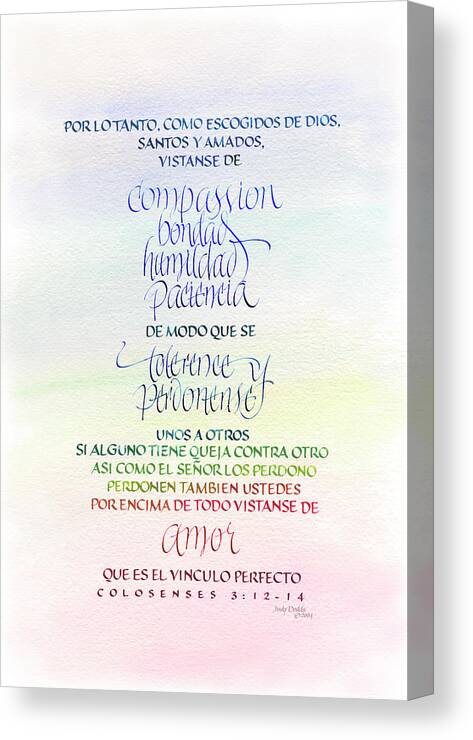 POR LO TANTO, COMO ESCOGIDOS DE DIOS,
SANTOS Y AMADOS,
VISTANSE DE
compassion
bondad
humildad
paciencia
DE MODO QUE SE
tolerence y
perdonense
UNOS A OTROS
SI ALGUNO TIENE QUEJA CONTRA OTRO
ASI COMO EL SEÑOR LOS PERDONO
PERDONEN TAMBIEN USTEDES
POR ENCIMA DE TODO VISTANSE DE
amor
QUE ES EL VINCULO PERFECTO
COLOSENSES 3:12-14
Judy Dodds
©2004